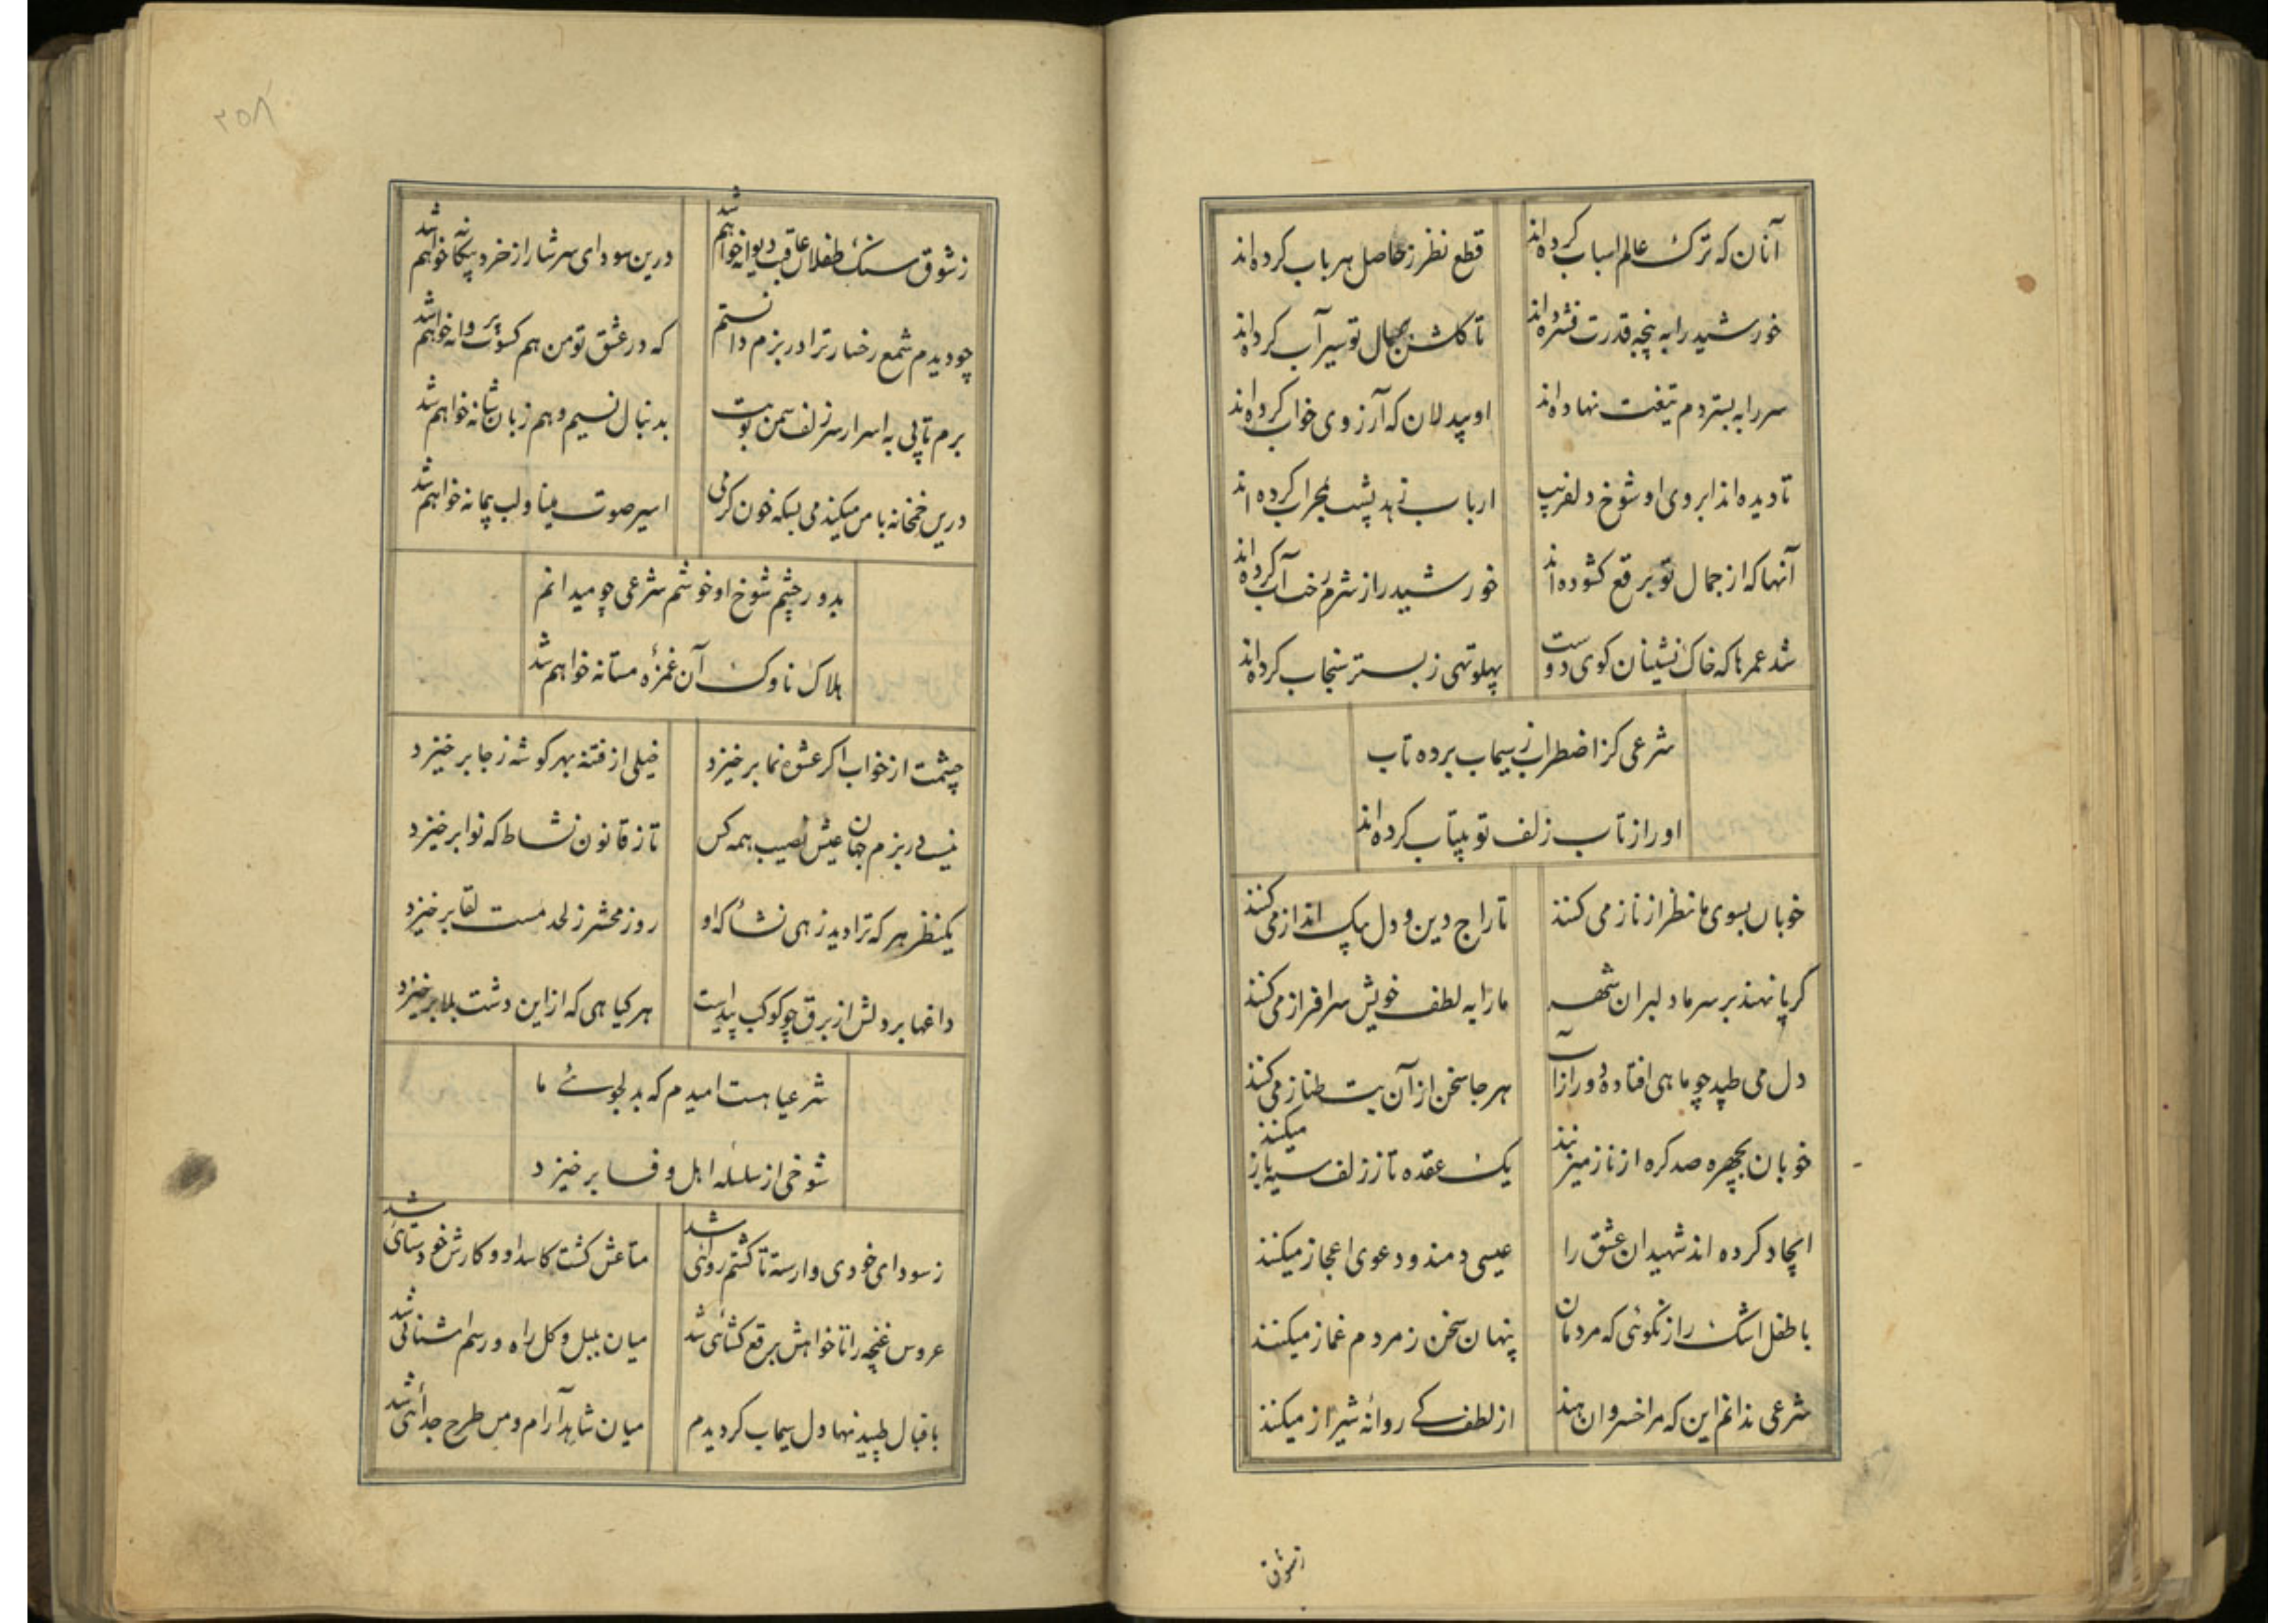 آنان که ترک عالم اسباب کرده‌اند قطع نظر ز حاصل هر باب کرده‌اند
خورشید را به پنجه قدرت فشرده‌اند تا گلشن جمال تو سیرآب کرده‌اند
سر را به بستر دم تیغت نهاده‌اند او بیدلان که آرزوی خواب کرده‌اند
تا دیده‌اند ابروی او شوخ دلفریب ارباب زهد پشت بمحراب کرده‌اند
آنها که از جمال تو برقع کشوده‌اند خورشید را ز شرم رخت آب کرده‌اند
شد عمرها که خاک نشینان کوی دوست پهلو تهی ز بستر سنجاب کرده‌اند
شرعی کز اضطراب ز سیماب برده تاب
او را ز تاب زلف تو بیتاب کرده‌اند
خوبان بسوی ما نظر از ناز می کنند تاراج دین و دل بیک انداز می کنند
گر پا نهند بر سر ما دلبران شهر ما را به لطف خویش سرافراز می کنند
دل می طپد چو ماهی افتاده دور از آب هر جا سخن از آن بت طناز می کنند
خوبان بچهره صد کره از ناز میزنند یک عقده تا ز زلف سیه باز میکنند
ایجاد کرده اند شهیدان عشق را عیسی دمند و دعوی اعجاز میکنند
با طفل اشک راز نگوئی که مردمان پنهان سخن ز مردم غماز میکنند
شرعی ندانم این که مرا خسروان هند از لطف کے روانهٔ شیراز میکنند
ز شوق
۲۵۸
ز شوق سنک طفلان عاقبت دیوانه خواهم شد درین سودای سرشار از خرد بیکانه خواهم شد
چو دیدم شمع رخسار ترا در بزم دانستم که در عشق تو من هم کسوت پروانه خواهم شد
برم تا پی به اسرار سر زلف سمن بویت بدنبال نسیم و هم زبان شانه خواهم شد
درین خمخانه با من میکند می بسکه خون گرمی اسیر صوت مینا و لب پیمانه خواهم شد
بدور چشم شوخ او خوشم شرعی چو میدانم
هلاک ناوک آن غمزهٔ مستانه خواهم شد
چشمت از خواب اکر عشوه نما بر خیزد خیلی از فتنه بهر کوشه ز جا بر خیزد
نیست در بزم جهان عیش نصیب همه کس تا ز قانون نشاط که نوا بر خیزد
یکنظر هر که ترا دید زهی نشأ که او روز محشر ز لحد مست لقا بر خیزد
داغها بر دلش از برق چو کوکب پیداست هر کیاهی که از این دشت بلا بر خیزد
شرعیا هست امیدم که بدلجوئے ما
شوخی از سلسله اهل وفا بر خیزد
ز سودای خودی وارسته تا کشتم روائی شد متاعش کشت کاسد او و کارش خودستائی شد
عروس غنچه را تا خواهش برقع کشائی شد میان بلبل و کل راه و رسم آشنائی شد
باقبال طپیدنها دل سیماب کردیدم میان شاهد آرام و من طرح جدائی شد